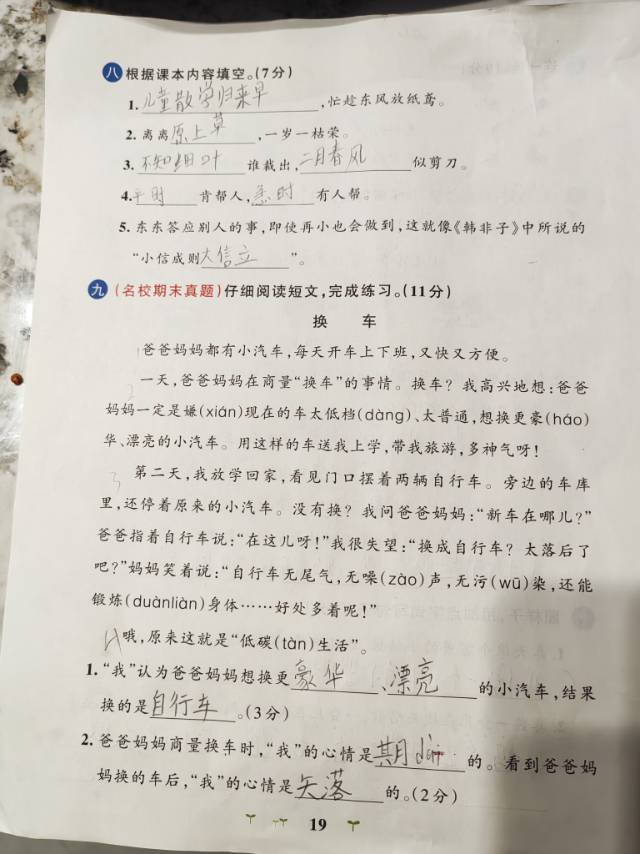 八 根据课本内容填空。(7分)
1. 儿童散学归来早，忙趁东风放纸鸢。
2. 离离原上草，一岁一枯荣。
3. 不知细叶谁裁出，二月春风似剪刀。
4. 平时肯帮人，急时有人帮。
5. 东东答应别人的事，即使再小也会做到，这就像《韩非子》中所说的
“小信成则大信立”。
九 (名校期末真题)仔细阅读短文，完成练习。(11分)
换 车
1 爸爸妈妈都有小汽车，每天开车上下班，又快又方便。
2 一天，爸爸妈妈在商量“换车”的事情。换车？我高兴地想：爸爸
妈妈一定是嫌(xián)现在的车太低档(dàng)、太普通，想换更豪(háo)
华、漂亮的小汽车。用这样的车送我上学，带我旅游，多神气呀！
3 第二天，我放学回家，看见门口摆着两辆自行车。旁边的车库
里，还停着原来的小汽车。没有换？我问爸爸妈妈：“新车在哪儿？”
爸爸指着自行车说：“在这儿呀！”我很失望：“换成自行车？太落后了
吧？”妈妈笑着说：“自行车无尾气，无噪(zào)声，无污(wū)染，还能
锻炼(duànliàn)身体……好处多着呢！”
4 哦，原来这就是“低碳(tàn)生活”。
1. “我”认为爸爸妈妈想换更豪华、漂亮的小汽车，结果
换的是自行车。(3分)
2. 爸爸妈妈商量换车时，“我”的心情是期的。看到爸爸妈
妈换的车后，“我”的心情是失落的。(2分)
19